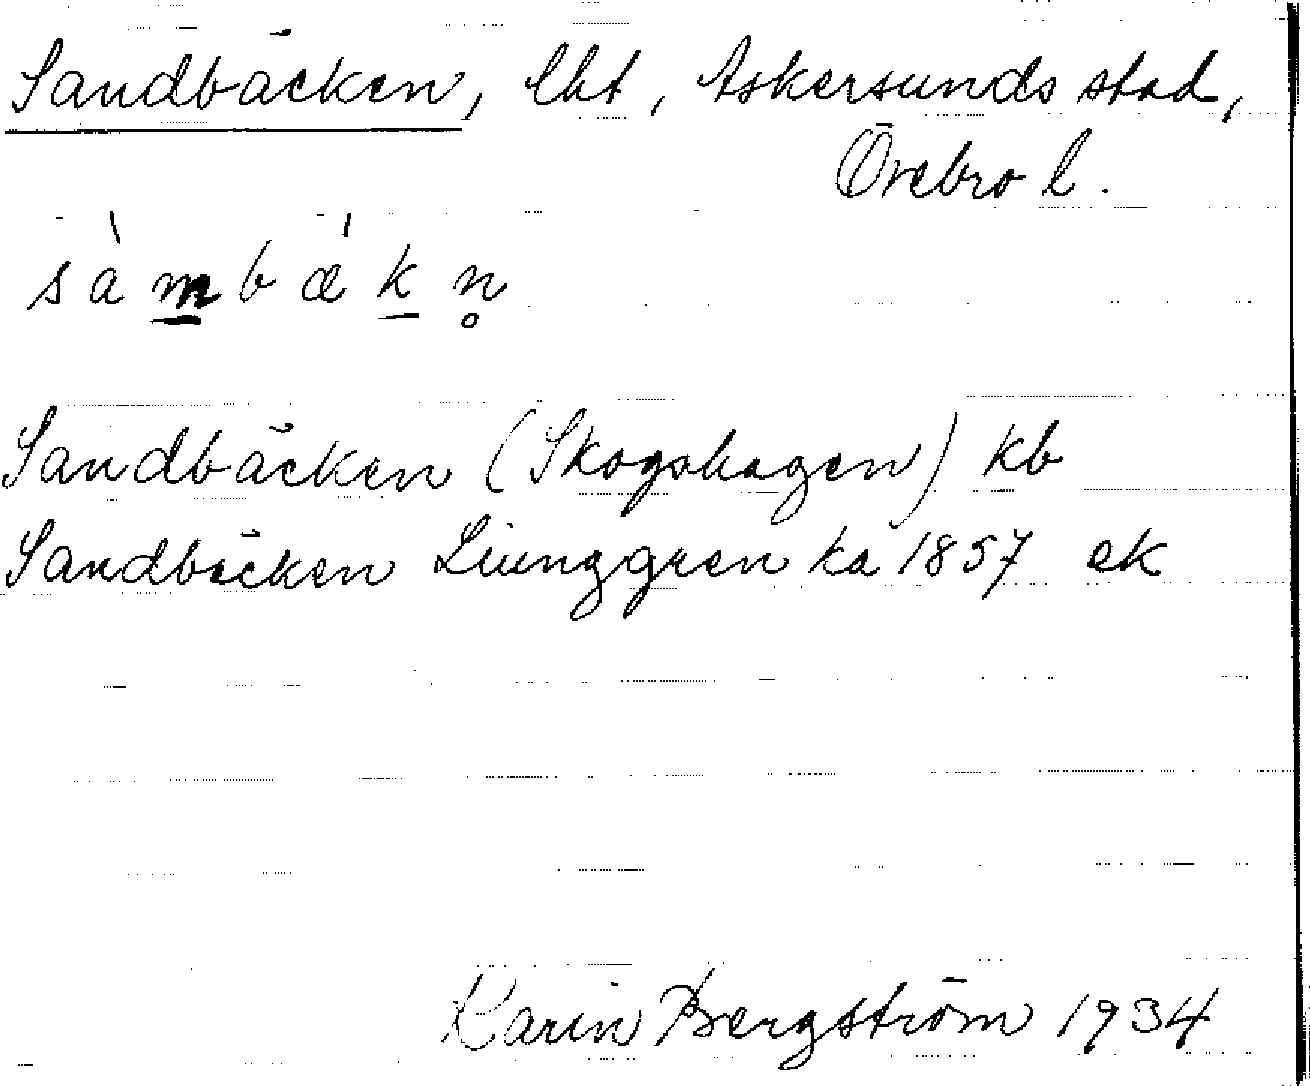 Sandbäcken, lht, Askersunds stad,
Örebro l.
sàmbǽkn̥
Sandbäcken (Skogshagen) kb
Sandbäcken Liunggren ka 1857 ek
Karin Bergström 1934